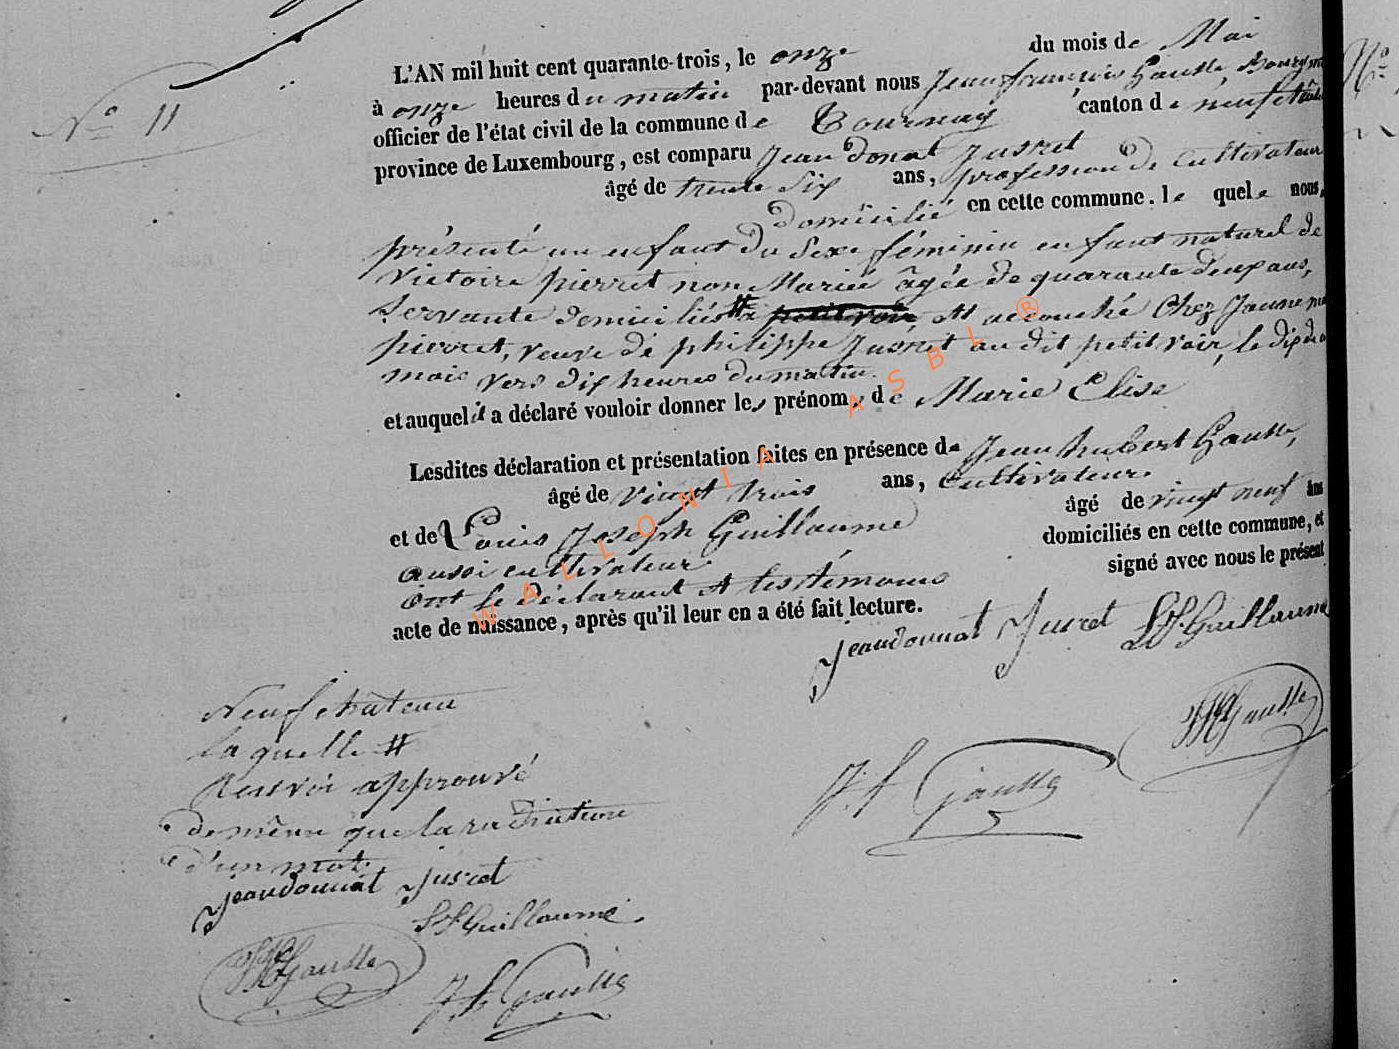 L'AN mil huit cent quarante-trois, le onze du mois de Mai
N° 11
à onze heures du matin par-devant nous Jean françois Gausse, Bourgm
officier de l'état civil de la commune de Tournay canton de neufchâteau
province de Luxembourg, est comparu Jean donat Jusret
âgé de trente Six ans, profession de Cultivateur
domicilié en cette commune. le quel a nous,
présenté un enfant du Sexe féminin enfant naturel de
Victoire pierret non Mariée âgée de quarante deux ans,
Servante domiciliée # à petitvoir et accouché Chez Jeanne
pierret, veuve de philippe Jusret au dit petitvoir, le dix du
mois vers dix heures du matin.
et auquel il a déclaré vouloir donner les prénoms de Marie Elise
Lesdites déclaration et présentation faites en présence de Jean hubert Gausse,
âgé de vingt trois ans, Cultivateur
et de Louis Joseph Guillaume âgé de vingt neuf ans
aussi cultivateur domiciliés en cette commune, et
ont le déclarant et les témoins signé avec nous le présent
acte de naissance, après qu'il leur en a été fait lecture.
jeandonnat Jusret LJ Guillaume
JH Gausse
J. f Gausse
Neufchateau
laquelle #
Renvoi approuvé
de même que la radiation
d'un mot.
jeandonnat Jusret
LJ Guillaume.
JH Gausse
J. f Gausse
WALLONIA ASBL ®
N°